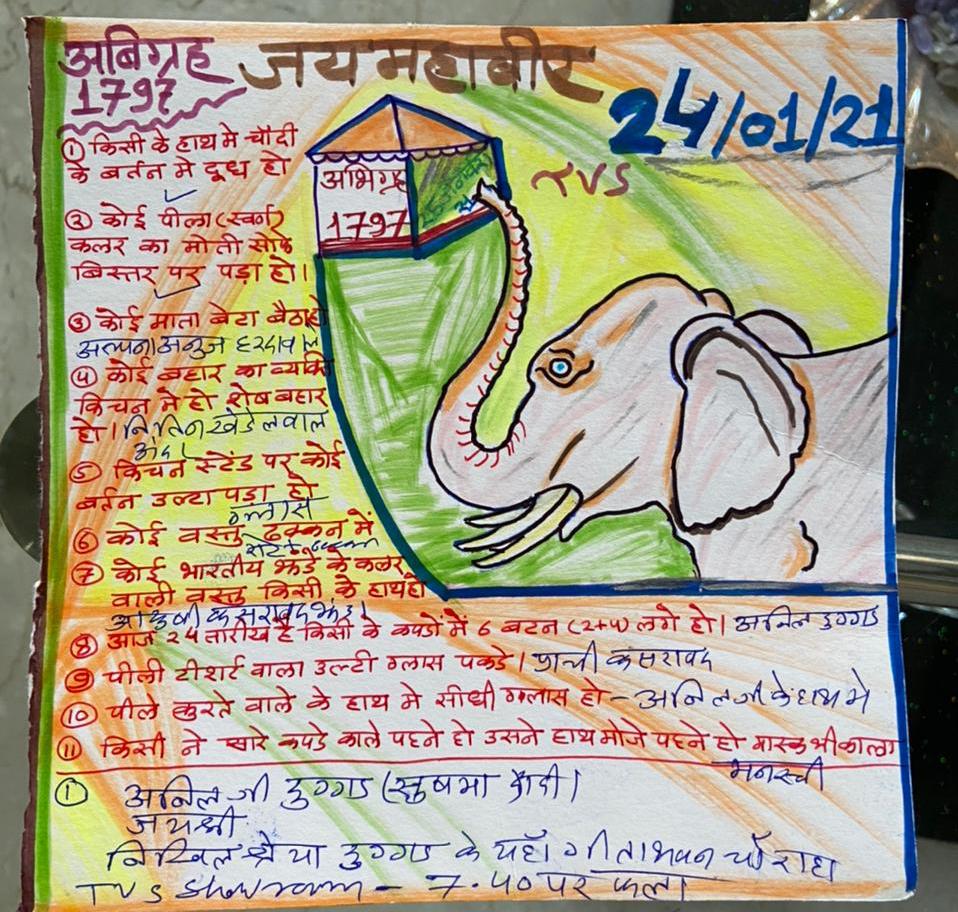 अबिग्रह
1797
जय महावीर
24/01/21
① किसी के हाथ मे चाँदी
के बर्तन मे दूध हो
② कोई पीला (स्वर्ण)
कलर का मोती सोफे
बिस्तर पर पड़ा हो।
③ कोई माता बेटा बैठा हो
④ कोई बहार का व्यक्ति
किचन मे हो शेष बहार
हो। नितिन खंडेलवाल
⑤ किचन स्टेंड पर कोई
बर्तन उल्टा पड़ा हो
ग्लास
⑥ कोई वस्तु ढक्कन में
⑦ कोई भारतीय झंडे के कलर
वाली वस्तु किसी के हाथ हो
⑧ आज 24 तारीख है किसी के कपडों में 6 बटन (2+4) लगे हो। अनिल डुग्गड
⑨ पीली टीशर्ट वाला उल्टी ग्लास पकडे। प्राची कसरावद
⑩ पीले कुरते वाले के हाथ मे सीधी ग्लास हो - अनिल जी के हाथ मे
⑪ किसी ने सारे कपडे काले पहने हो उसने हाथ मोजे पहने हो मास्क भी काला
मनस्वी
अभिग्रह
1797
TVS
① अनिल जी डुग्गड (सुषमा
जयश्री
निखिल श्रेया डुग्गड के यहाँ गीता भवन चौराहा
TVS Showroom - 7.40 पर फला